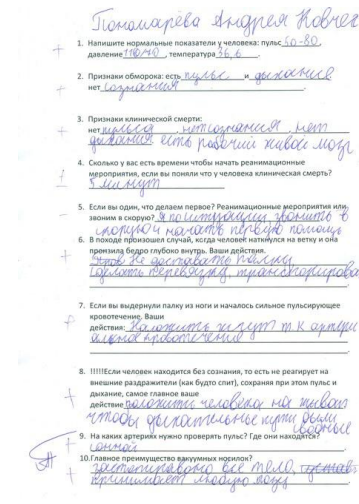 Пономарёва Андрея Ковчег
1. Напишите нормальные показатели у человека: пульс 60-80,
давление 110/70, температура 36,6.
2. Признаки обморока: есть пульс и дыхание
нет сознания
3. Признаки клинической смерти:
нет пульса, нет сознания, нет
дыхания есть рабочий живой мозг
4. Сколько у вас есть времени чтобы начать реанимационные
мероприятия, если вы поняли что у человека клиническая смерть?
5 минут
5. Если вы один, что делаем первое? Реанимационные мероприятия или
звоним в скорую? звонить в
скорую и начать первую помощь
6. В походе произошел случай, когда человек наткнулся на ветку и она
пронзила бедро глубоко внутрь. Ваши действия.
Не доставать палку
сделать перевязку, транспортирова
7. Если вы выдернули палку из ноги и началось сильное пульсирующее
кровотечение. Ваши
действия: Наложить жгут т.к артери
альное кровотечение
8. !!!!!Если человек находится без сознания, то есть не реагирует на
внешние раздражители (как будто спит), сохраняя при этом пульс и
дыхание, самое главное ваше
действие положить человека на живот
чтобы дыхательные пути были
свободные
9. На каких артериях нужно проверять пульс? Где они находятся?
сонной
10. Главное преимущество вакуумных носилок?
всё тело,
принимает любую позу